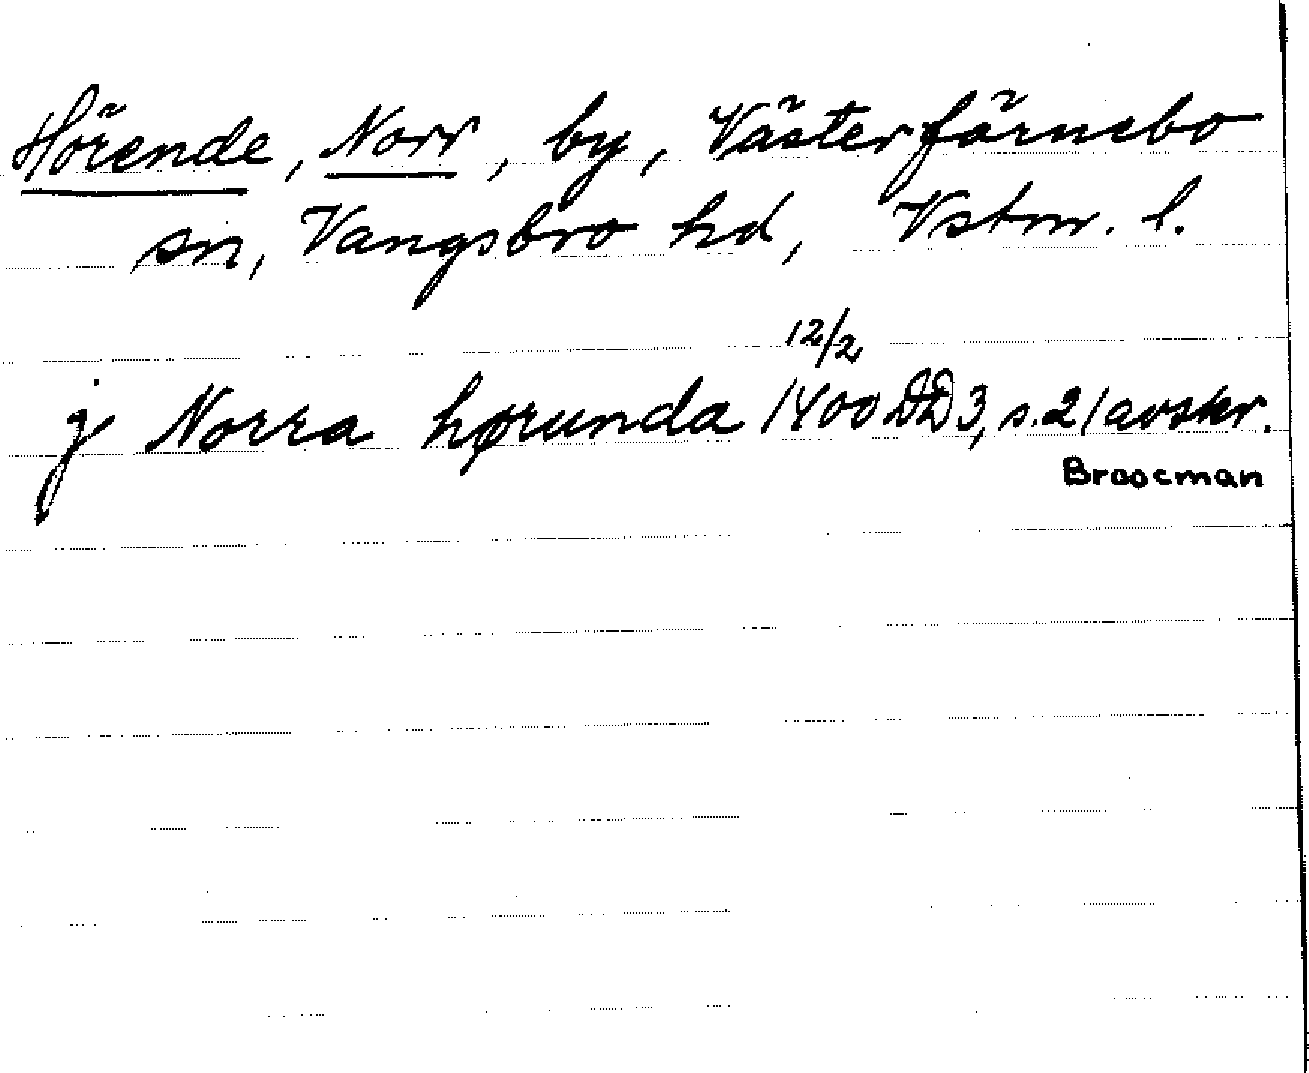 Hörende, Norr, by, Västerfärnebo
sn, Vangsbro hd, Vstm. l.
12/2
j Norra hørunda 1400 DD3, s. 21 avskr.
Broocman